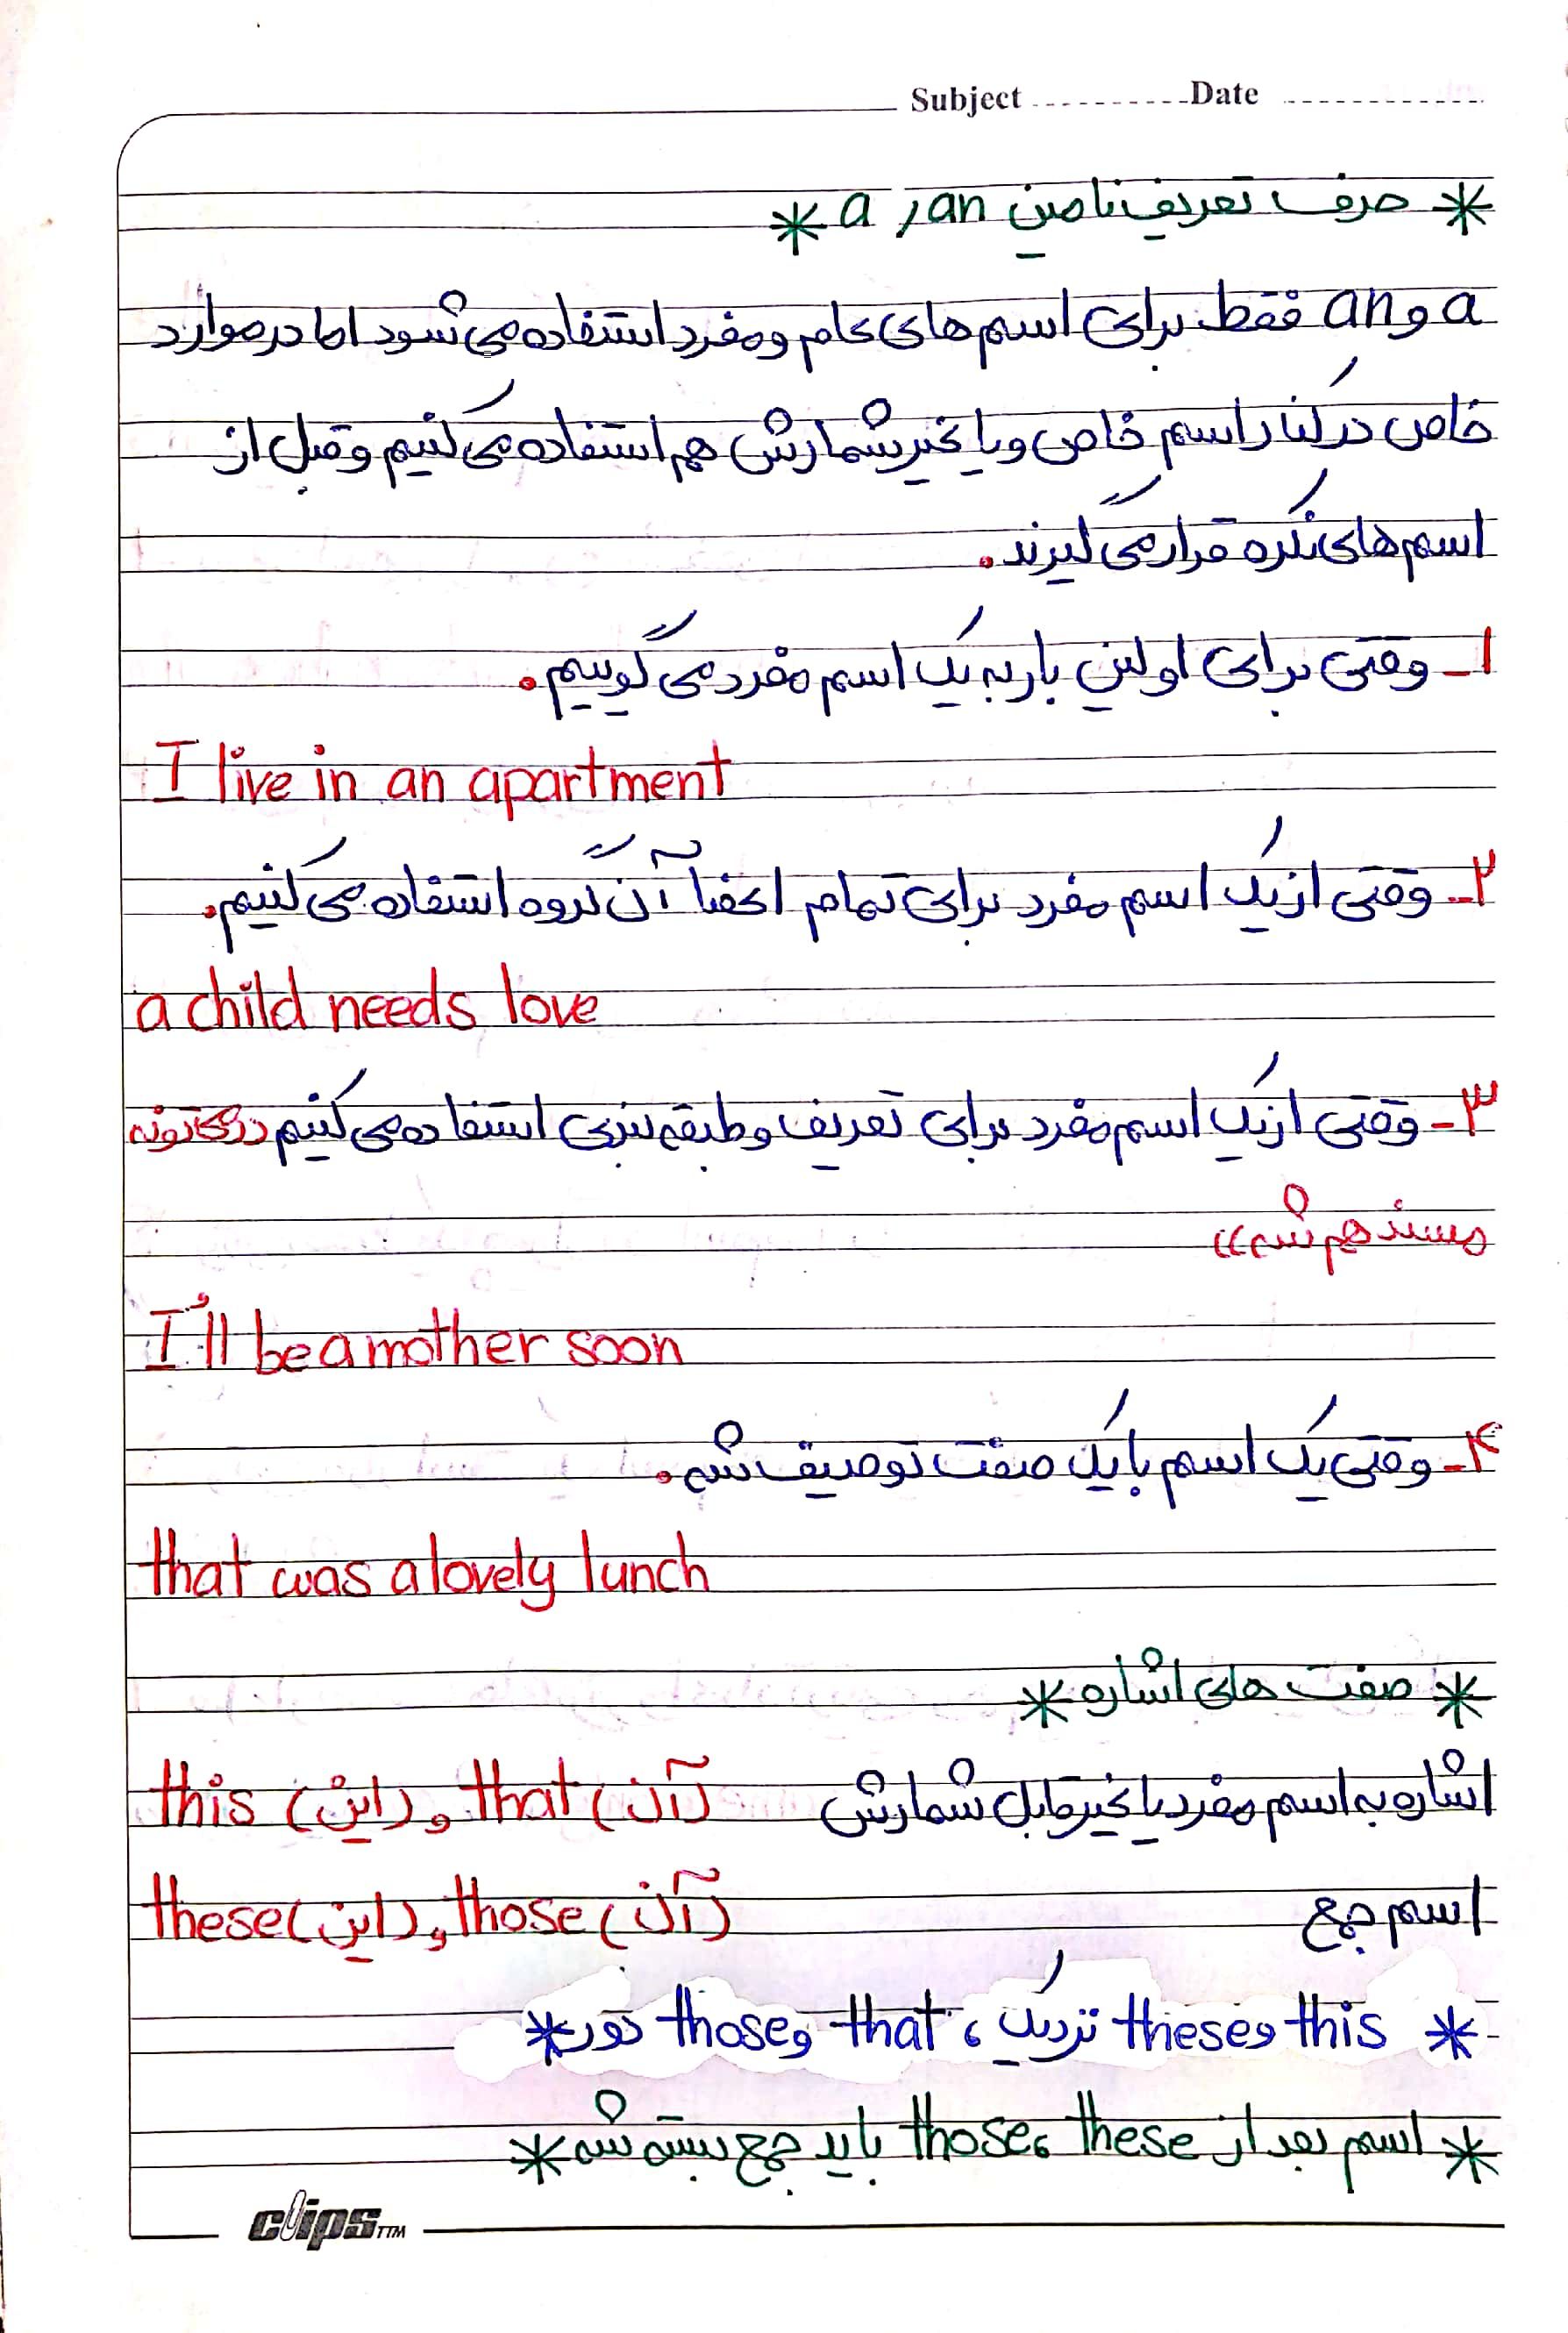 Subject ---------- Date -------------
* حرف تعریف نامعین a , an *
a و an فقط برای اسم های عام و مفرد استفاده می شود اما در موارد
خاص در کنار اسم خاص و یا غیر شمارش هم استفاده می کنیم و قبل از
اسم های نکره قرار می گیرند.
۱- وقتی برای اولین بار به یک اسم مفرد می گوییم.
I live in an apartment
۲- وقتی از یک اسم مفرد برای تمام اعضا آن گروه استفاده می کنیم.
a child needs love
۳- وقتی از یک اسم مفرد برای تعریف و طبقه بندی استفاده می کنیم
مسند هم شه))
I'll be a mother soon
۴- وقتی یک اسم با یک صفت توصیف شه.
that was a lovely lunch
* صفت های اشاره *
اشاره به اسم مفرد یا غیر قابل شمارش this (این) و that (آن)
اسم جمع these (این) و those (آن)
* this و these نزدیک ، that و those دور *
* اسم بعد از these ، those باید جمع بسته شه *
clips TTM